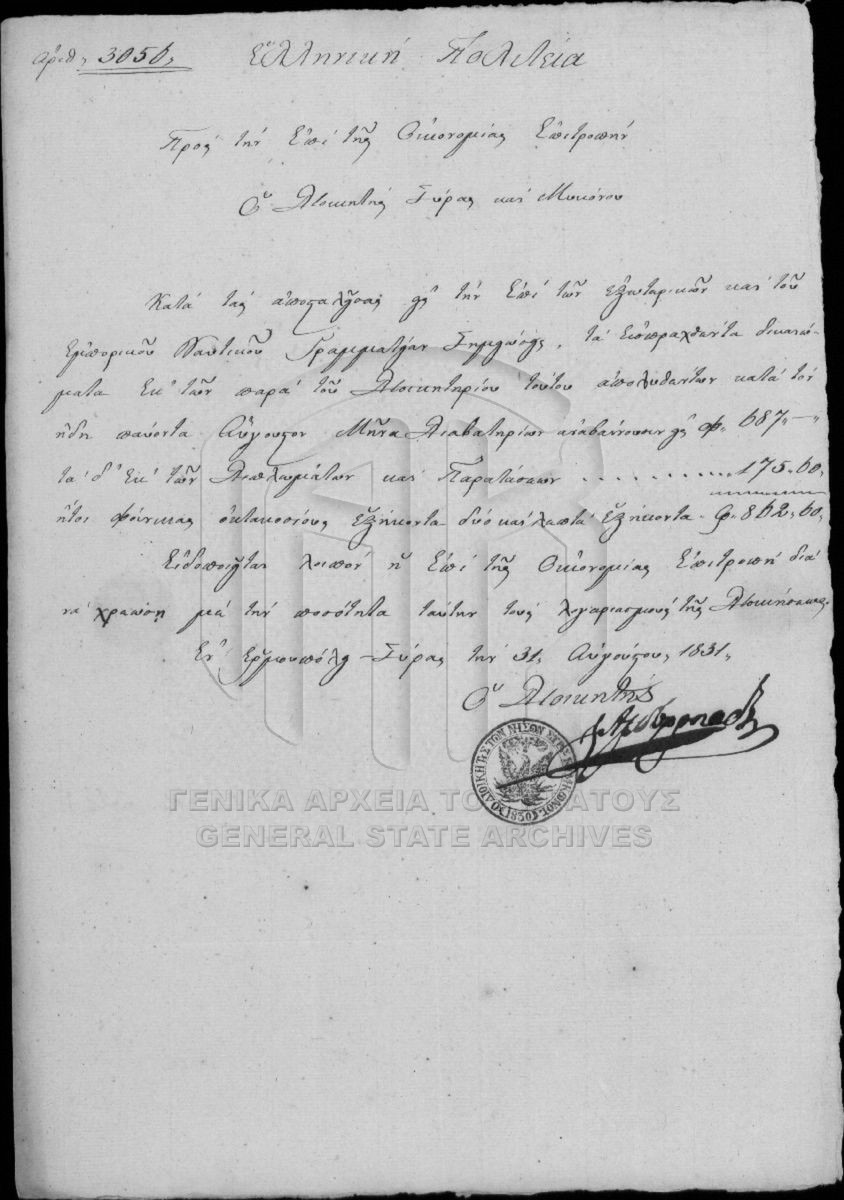 Ἀριθ. 3056, Ἑλληνική Πολιτεία
Πρός τήν Ἐπί τῆς Οἰκονομίας Ἐπιτροπήν
Ὁ Διοικητής Σύρας καί Μυκόνου
Κατά τάς ἀποσταλείσας εἰς τήν Ἐπί τῶν ἐξωτερικῶν καί τοῦ
ἐμπορικοῦ Ναυτικοῦ Γραμματείαν Σημειώσεις, τά εἰσπραχθέντα δικαιώ-
ματα ἐκ τῶν παρά τοῦ Διοικητηρίου τούτου ἀπολυθέντων κατά τόν
ἤδη παύοντα Αὔγουστον Μῆνα Διαβατηρίων ἀναβαίνουσιν εἰς φ. 687 -"
τά δ' ἐκ τῶν Διπλωμάτων καί Παρατάσεων .......... 175.60,
ἤτοι φοίνικας ὀκτακοσίους ἑξήκοντα δύο καί λεπτά ἑξήκοντα φ. 862.60,
Εἰδοποιεῖται λοιπόν ἡ Ἐπί τῆς Οἰκονομίας Ἐπιτροπή διά
νά χρεώσῃ μέ τήν ποσότητα ταύτην τούς λογαριασμούς τῆς Διοικήσεως.
Ἐν Ἑρμουπόλει Σύρας τήν 31, Αὐγούστου, 1831,
Ὁ Διοικητής
ΓΕΝΙΚΑ ΑΡΧΕΙΑ ΤΟΥ ΚΡΑΤΟΥΣ
GENERAL STATE ARCHIVES